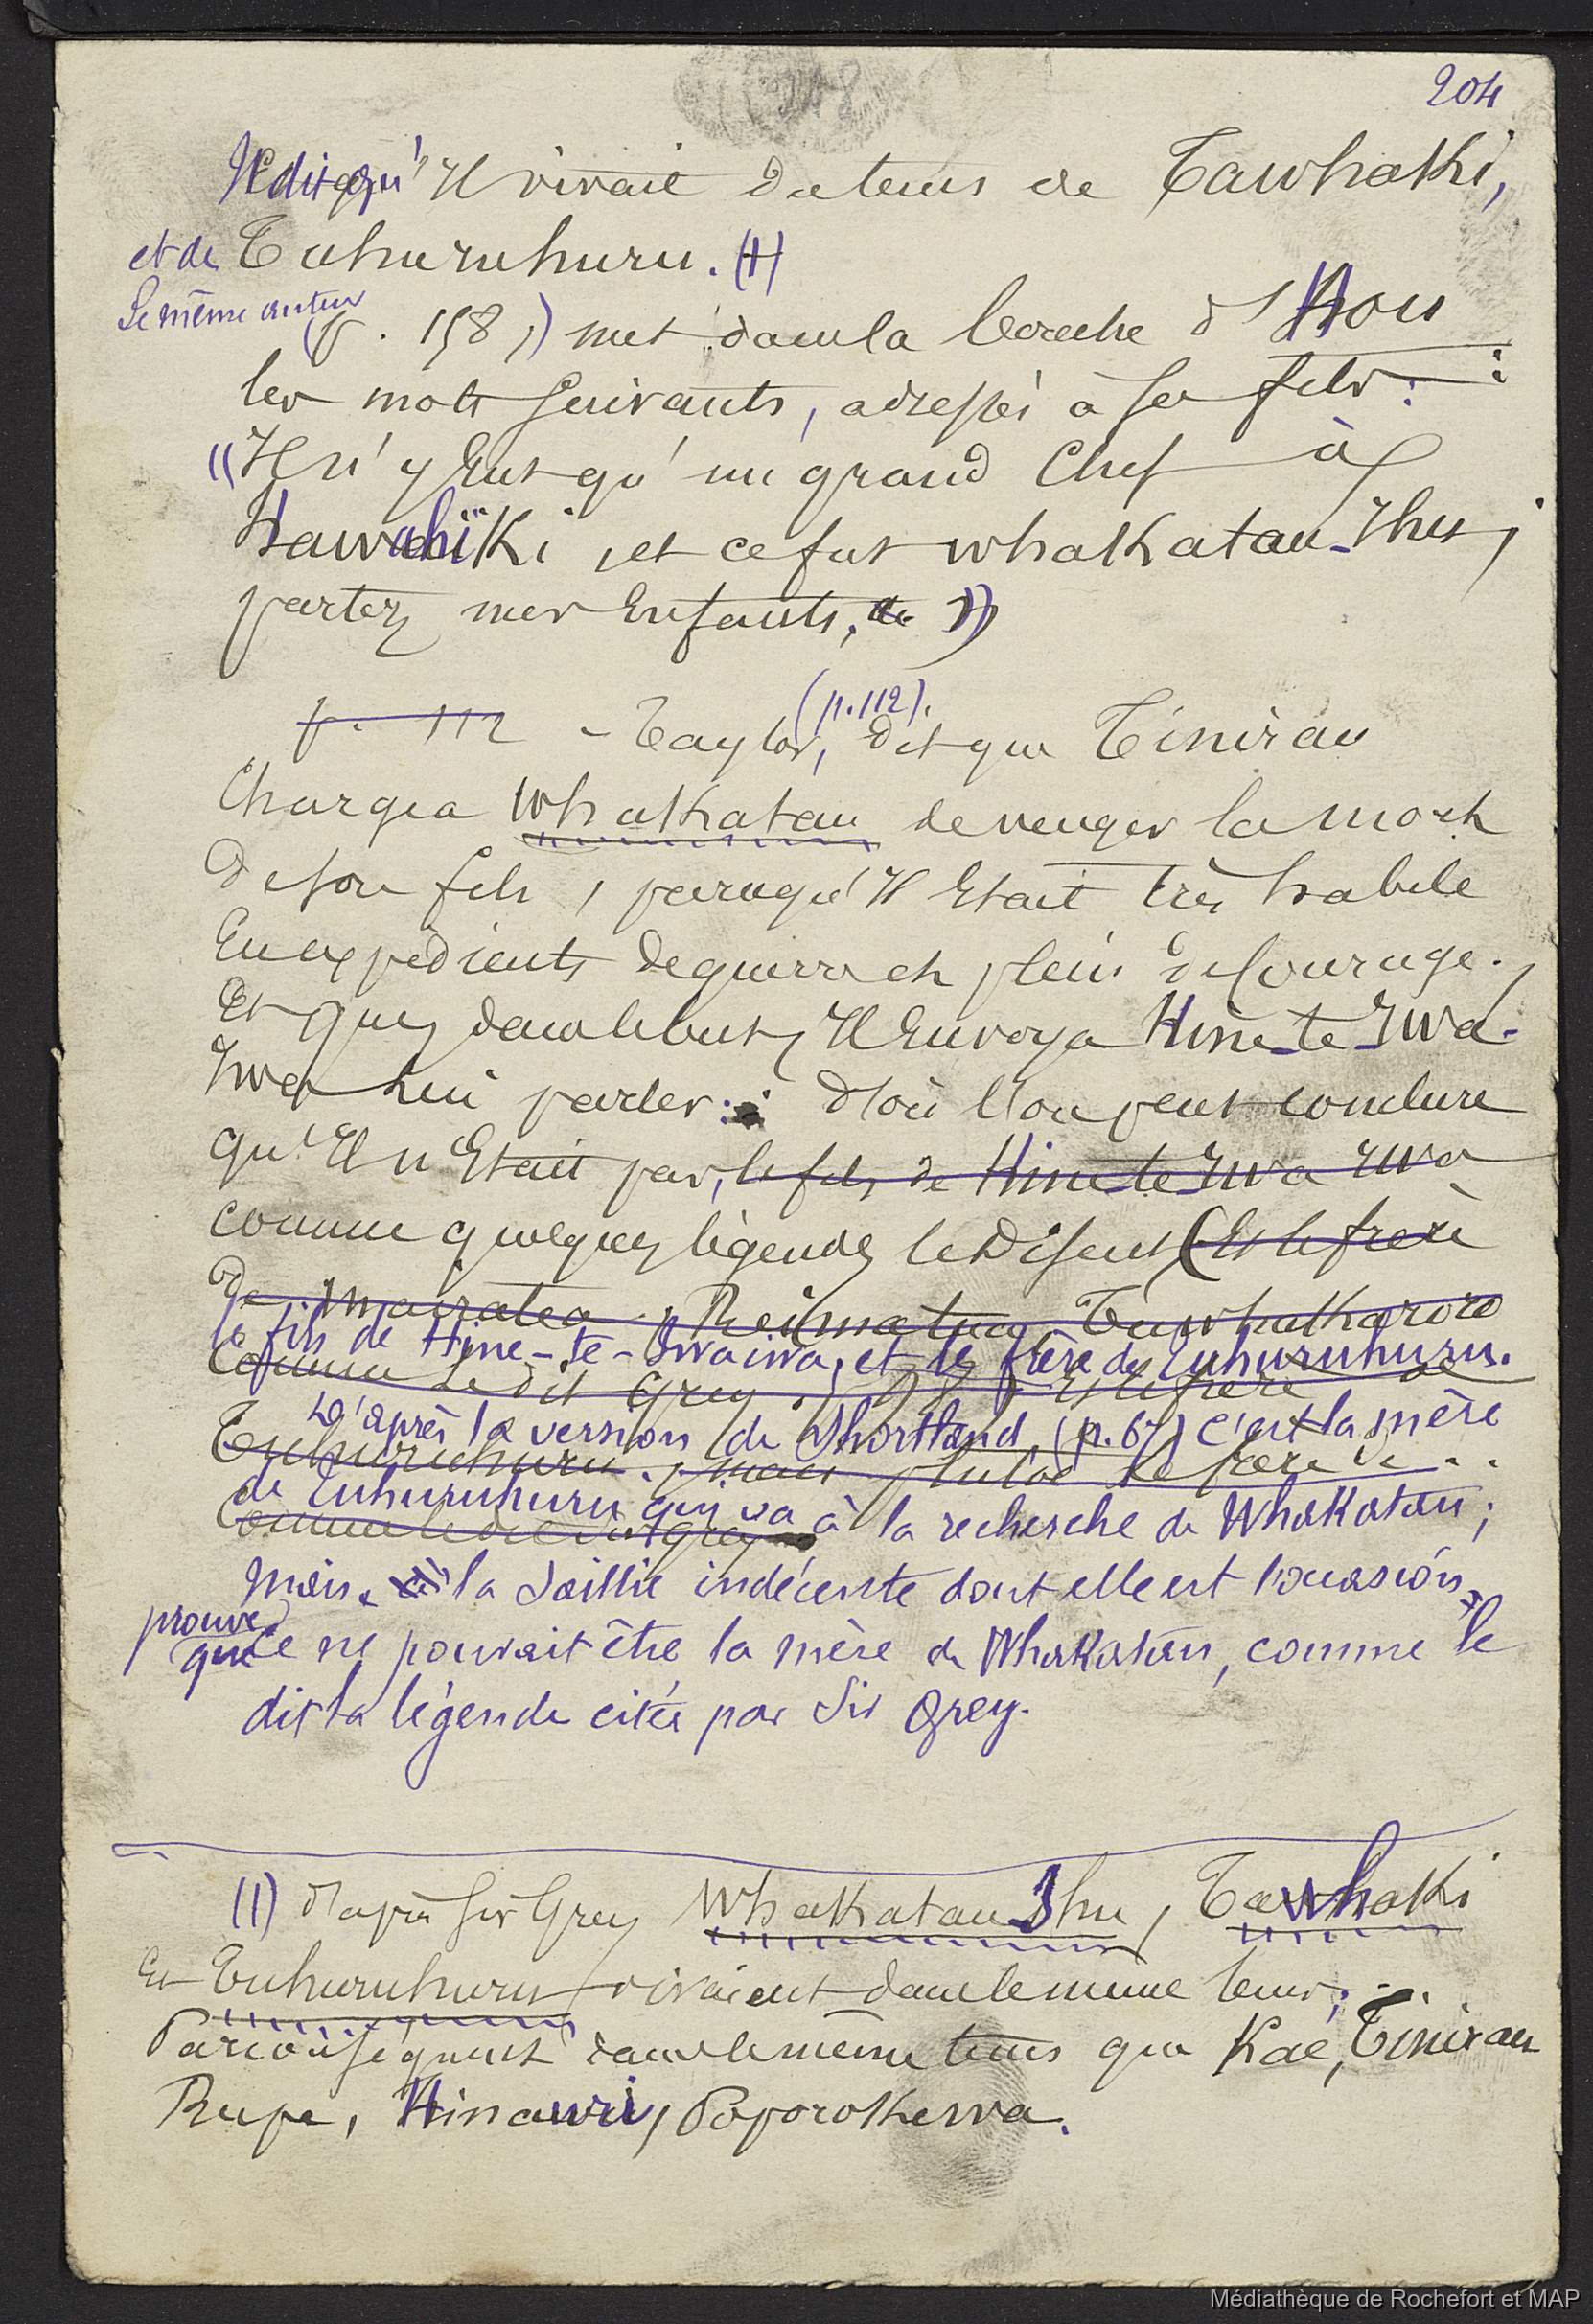 204
Il dit qu'Il vivait du tems de Tawhaki,
et de Tuhuruhuru. (1)
Le même auteur
(p. 158,) met dans la bouche d'Hou
les mots suivants, adressés à ses fils :
"Il n'y eut qu'un grand Chef à
Hawahiki, et ce fut Whakatau-Ihu ;
partez mes Enfants. "
p. 112 - Taylor, (p. 112). dit que Tinirau
Chargea Whakatau de venger la mort
de son fils, parcequ'Il Etait très habile
En expédients de guerre et plein de Courage.
Et que, dans le but, Il Envoya Hine-te-Iwa-
Iwa lui parler : d'où l'on peut conclure
qu'Il n'Etait pas, le fils de Hine te Iwa Iwa
comme quelques légendes le Disent (Et le frère
de
le fils de Hine-te-Iwaiwa, et le frère de Tuhuruhuru.
Comme le dit Grey
D'après la version de Shortland, (p. 67) c'est la mère
Tuhuruhuru. mais plutôt le frère de . .
de Tuhuruhuru qui va à la recherche de Whakatau ;
Comme le dit
mais la saillie indécente dont elle est l'occasion,
prouve
que ce ne pouvait être la mère de Whakatau, comme le
dit la légende citée par Sir Grey.
(1) d'après Sir Grey Whakatau Ihu, Tawhaki
Et Tuhuruhuru vivaient dans le même tems ;
Par conséquent dans le même tems que Kaé, Tinirau
Rupe, Hinauri, Poporokewa.
Médiathèque de Rochefort et MAP